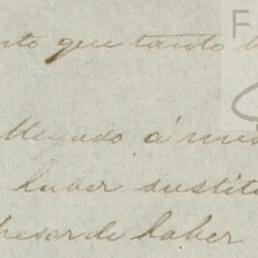 nto que tanto
llegado á mis
haber sustitu
pesar de haber